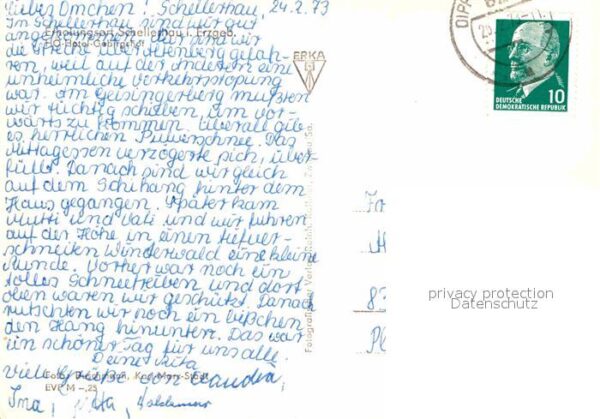 Liebes Omchen! Schellerhau, 24.2.73
In Schellerhau sind wir gut
angekommen. sind wir
die Strecke Altenberg gefah-
ren, weil auf der anderen eine
unheimliche Verkehrsstopung
war. Am Geisingerberg mußten
wir tüchtig schieben, um vor-
wärts zu kommen. Überall gibt
es herrlichen Pulverschnee. Das
Mittagessen verzögerte sich, über-
füllt. Danach sind wir gleich
auf dem Schihang hinter dem
Haus gegangen. Später kam
Mutti und Vati und wir fuhren
auf der Höhe in einen tiefver-
schneiten Winterwald eine kleine
Runde. Vorher war noch ein
tolles Schneetreiben und dort
oben waren wir geschützt. Danach
rutschten wir noch ein bißchen
den Hang hinunter. Das war
ein schöner Tag für uns alle.
Deine
Viele Grüße von
Erholungsort Schellerhau i. Erzgeb.
Karl-Marx-Stadt
EVP M -,25
ERKA
Fotografischer Verlag
DIPP
10
DEUTSCHE
DEMOKRATISCHE REPUBLIK
Fr
83
privacy protection
Datenschutz